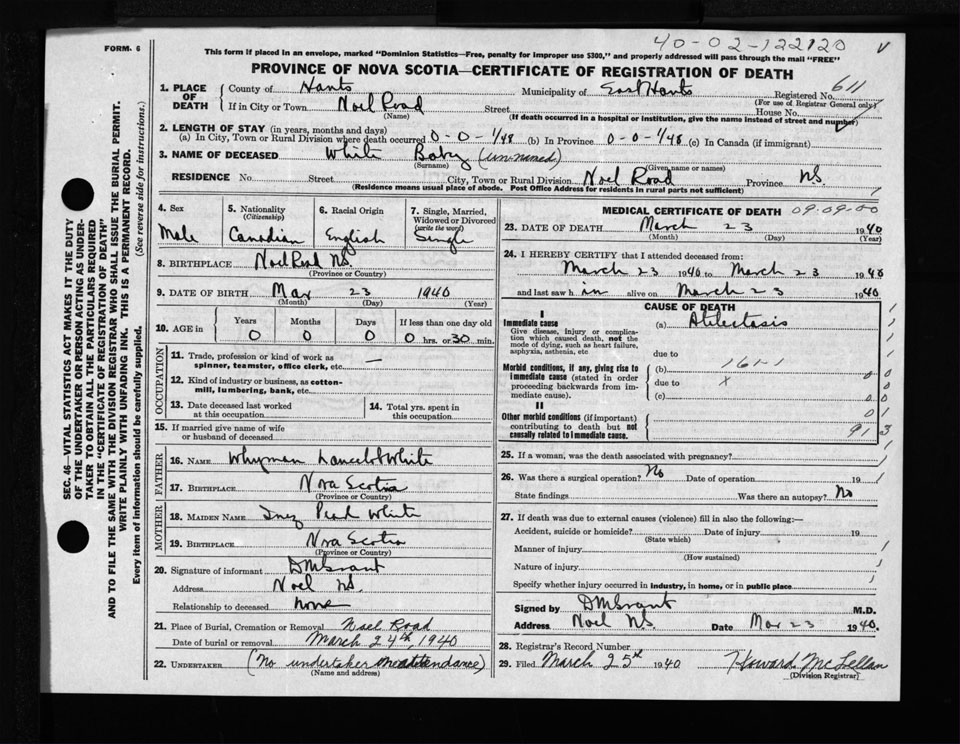 FORM. 6
40-02-122120
This form if placed in an envelope, marked "Dominion Statistics—Free, penalty for improper use $300," and properly addressed will pass through the mail "FREE"
PROVINCE OF NOVA SCOTIA—CERTIFICATE OF REGISTRATION OF DEATH
611
1. PLACE OF DEATH
County of Hants Municipality of East Hants Registered No.
(For use of Registrar General only)
If in City or Town Noel Road Street House No.
(Name) (If death occurred in a hospital or institution, give the name instead of street and number)
2. LENGTH OF STAY (in years, months and days)
(a) In City, Town or Rural Division where death occurred 0-0-1/48 (b) In Province 0-0-1/48 (c) In Canada (if immigrant)
3. NAME OF DECEASED White Baby (un-named)
(Surname) (Given name or names)
RESIDENCE No. Street City, Town or Rural Division Noel Road Province N.S.
(Residence means usual place of abode. Post Office Address for residents in rural parts not sufficient)
4. Sex 5. Nationality 6. Racial Origin 7. Single, Married, Widowed or Divorced
(Citizenship) (write the word)
Male Canadian English Single
8. BIRTHPLACE Noel Road N.S.
(Province or Country)
9. DATE OF BIRTH Mar 23 1940
(Month) (Day) (Year)
10. AGE in Years Months Days If less than one day old
0 0 0 0 hrs. or 30 min.
OCCUPATION
11. Trade, profession or kind of work as spinner, teamster, office clerk, etc. —
12. Kind of industry or business, as cotton-mill, lumbering, bank, etc.
13. Date deceased last worked at this occupation
14. Total yrs. spent in this occupation
15. If married give name of wife or husband of deceased
FATHER
16. NAME Whyman Lancelot White
17. BIRTHPLACE Nova Scotia
(Province or Country)
MOTHER
18. MAIDEN NAME Inez Pearl White
19. BIRTHPLACE Nova Scotia
(Province or Country)
20. Signature of informant DM Grant
Address Noel N.S.
Relationship to deceased None
21. Place of Burial, Cremation or Removal Noel Road
Date of burial or removal March 24th, 1940
22. UNDERTAKER (No undertaker attendance)
(Name and address)
MEDICAL CERTIFICATE OF DEATH 09.09.00
23. DATE OF DEATH March 23 1940
(Month) (Day) (Year)
24. I HEREBY CERTIFY that I attended deceased from:
March 23 1940 to March 23 1940
and last saw h im alive on March 23 1940
CAUSE OF DEATH
I
Immediate cause (a) Atilectasis
Give disease, injury or complication which caused death, not the mode of dying, such as heart failure, asphyxia, asthenia, etc
due to
Morbid conditions, if any, giving rise to immediate cause (stated in order proceeding backwards from immediate cause).
(b) 161-1
due to X
(c)
II
Other morbid conditions (if important) contributing to death but not causally related to immediate cause.
0 1
91 3
25. If a woman, was the death associated with pregnancy?
26. Was there a surgical operation? No Date of operation 19
State findings Was there an autopsy? No
27. If death was due to external causes (violence) fill in also the following:—
Accident, suicide or homicide? Date of injury 19
(State which)
Manner of injury
(How sustained)
Nature of injury
Specify whether injury occurred in industry, in home, or in public place
Signed by DM Grant M.D.
Address Noel N.S. Date Mar 23 1940.
28. Registrar's Record Number
29. Filed March 25th 1940 Howard McLellan
(Division Registrar)
SEC. 46—VITAL STATISTICS ACT MAKES IT THE DUTY
OF THE UNDERTAKER OR PERSON ACTING AS UNDER-
TAKER TO OBTAIN ALL THE PARTICULARS REQUIRED
IN THE "CERTIFICATE OF REGISTRATION OF DEATH"
AND TO FILE THE SAME WITH THE DIVISION REGISTRAR WHO SHALL ISSUE THE BURIAL PERMIT.
WRITE PLAINLY WITH UNFADING INK. THIS IS A PERMANENT RECORD.
Every item of information should be carefully supplied. (See reverse side for instructions.)